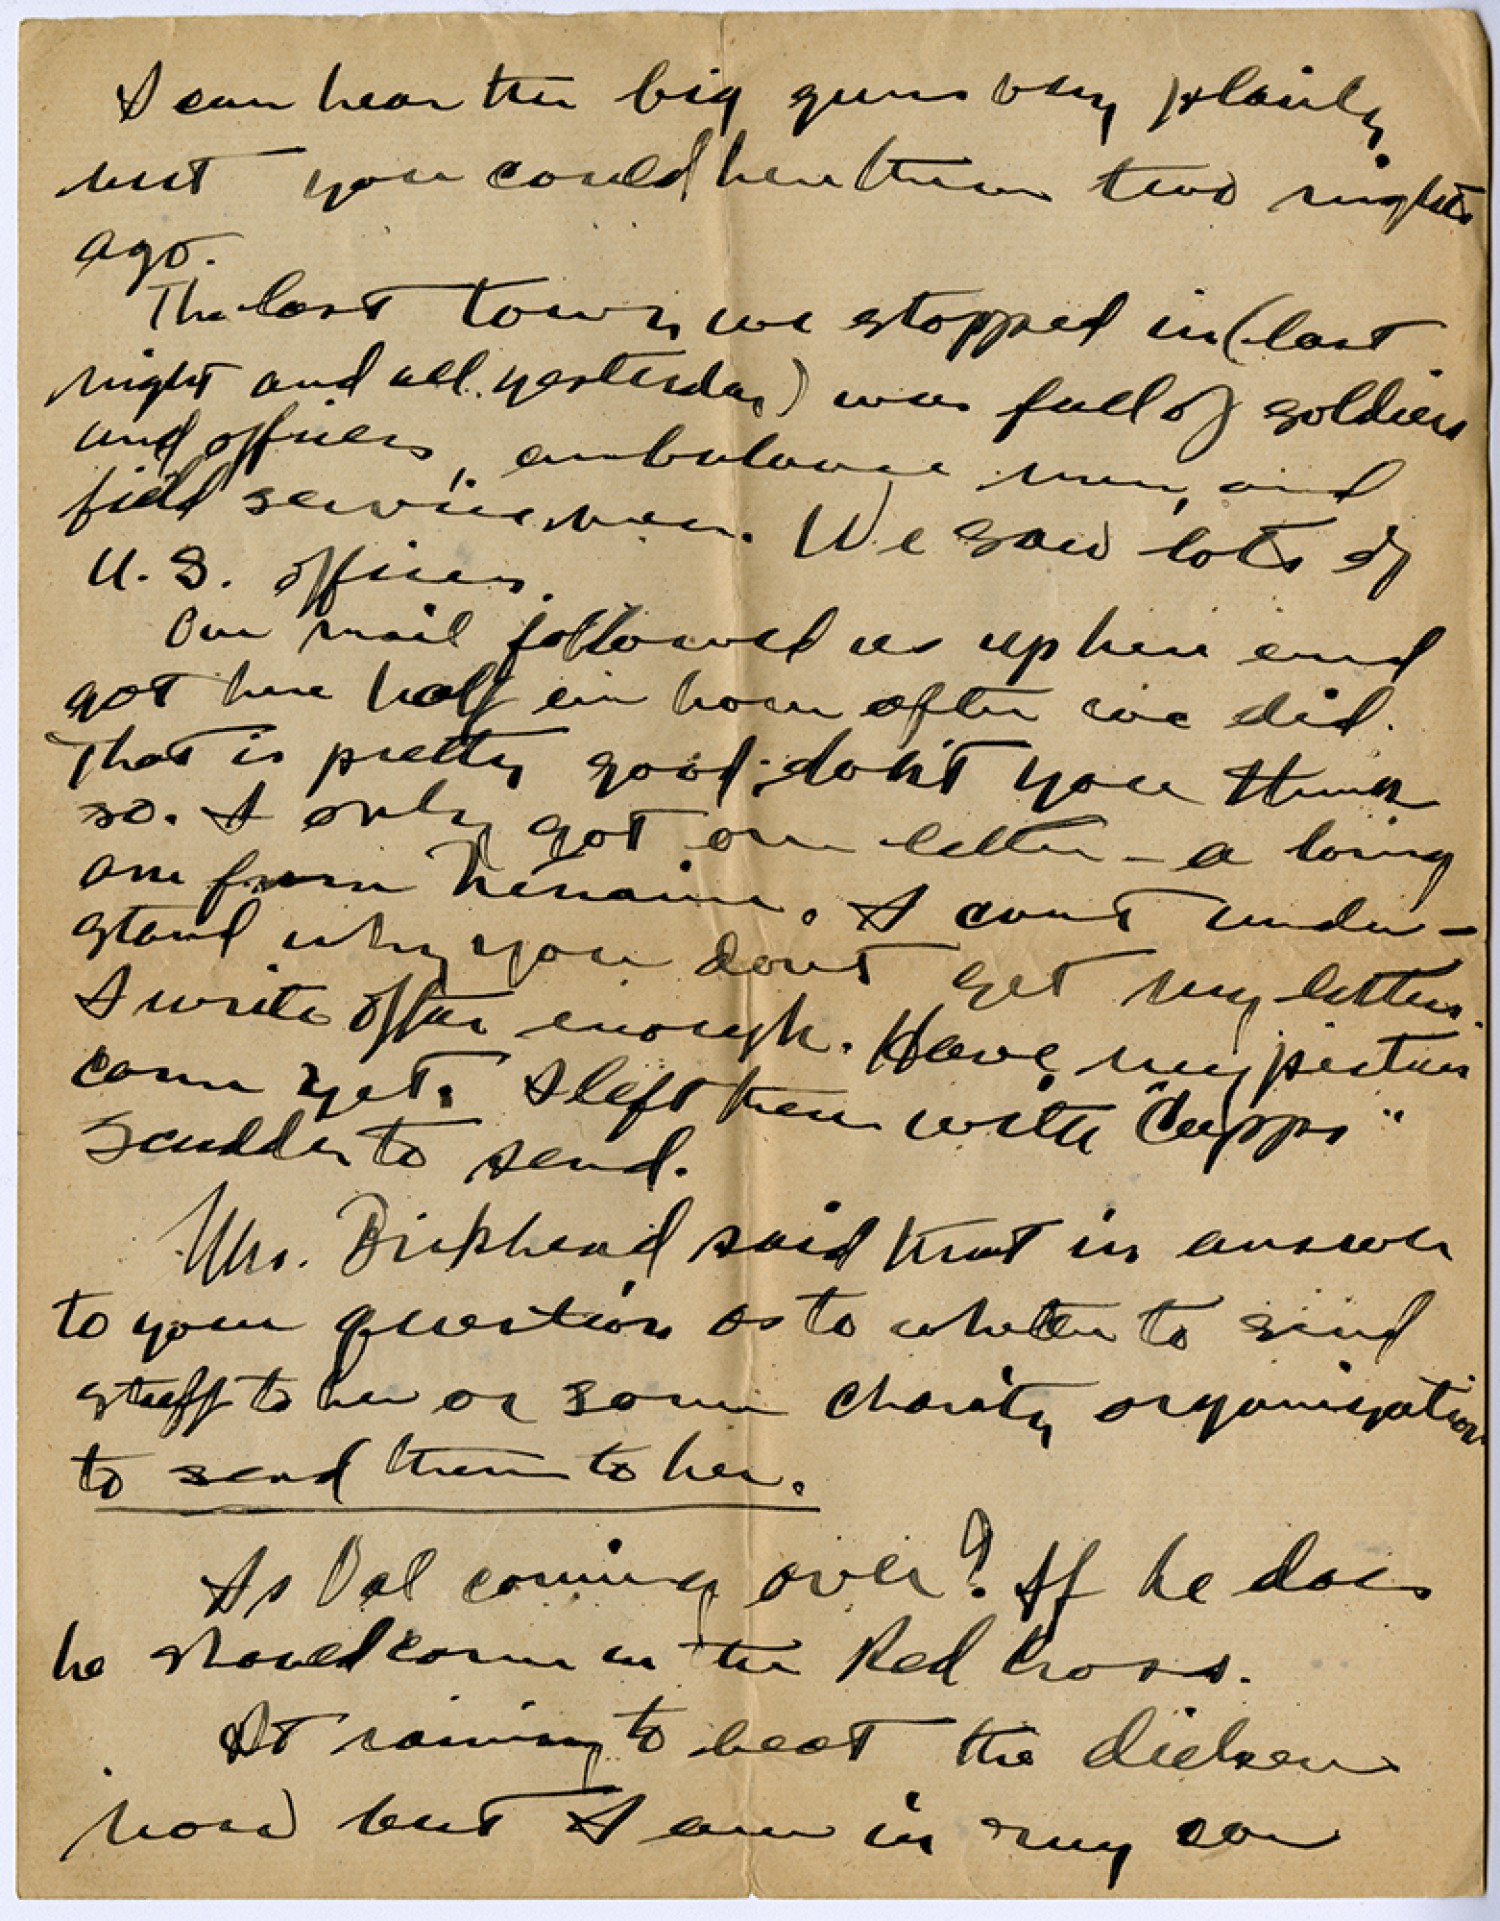 I can hear the big guns very plainly
but you could hear them two nights
ago.
The last town we stopped in (last
night and all yesterday) was full of soldiers
and officers, ambulance men, and
field service men. We saw lots of
U.S. officers.
Our mail followed us up here and
got here half an hour after we did.
That is pretty good, don't you think
so. I only got one letter – a long
one from. I can't under-
stand why you don't get my letters.
I write often enough. Have my pictures
come yet. I left them with "Cupps"
Scudder to send.
Mrs. said that in answer
to your question as to whether to send
stuff to her or some charity organization
to send them to her.
Is Val coming over? If he does
he should come in the Red Cross.
It raining to beat the dickens
now but I am in my car